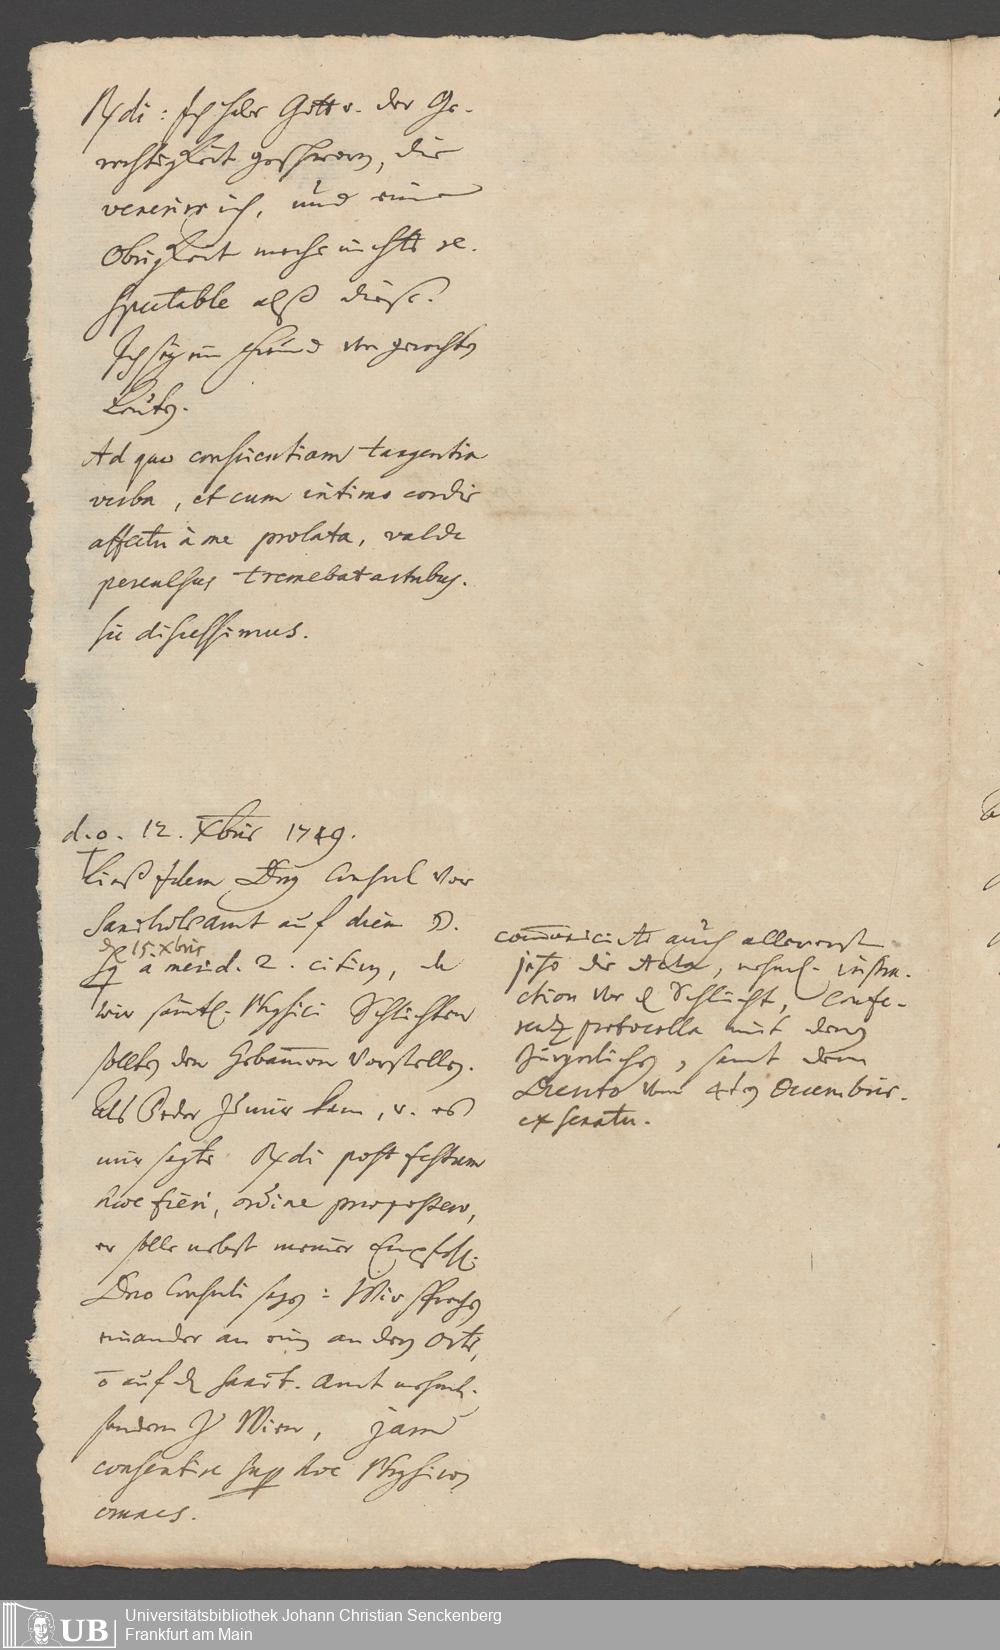 Rxdi: Ich habe Gott u. der Ge-
rechtigkeit geschworen, die
venerire ich, und eine
Obrigkeit mache nichts re-
spectable alß diese.
Ich sey ein Freund von gerechten
Leuten.
Ad quae conscientiam tangentia
verba, et cum intimo cordis
affectu à me prolata, valde
perculsus tremebat artubus.
sic discessimus.
d. o. 12. Xbris 1749.
ließ Dnus Consul vor
Sanitäts amt auf diem
15 Xbris
à merid. 2. citiren, da
wir sämtl. Physici Schlichten
sollten den Hebammen Vorstellen.
Als Peder zu mir kam, u. es
mir sagte Rxdi post festum
hoc fieri, ordine praepostero,
er solle nebst meiner Empfehl.
Dno Consuli sagen: Wir sprechen
einander an einem andern Orte,
o auf dem Sanit. Amt nehml.
sondern zu Wien, jam
consentire super hoc Physicos
omnes.
communicirte auch allererst
jetzo die Acta, nehml. instru-
ction vor Schlicht, Confe-
renz protocolla mit denen
Bürgerlichen, samt dem
Decreto vom 4ten Decembris.
ex senatu.
UB
Universitätsbibliothek Johann Christian Senckenberg
Frankfurt am Main